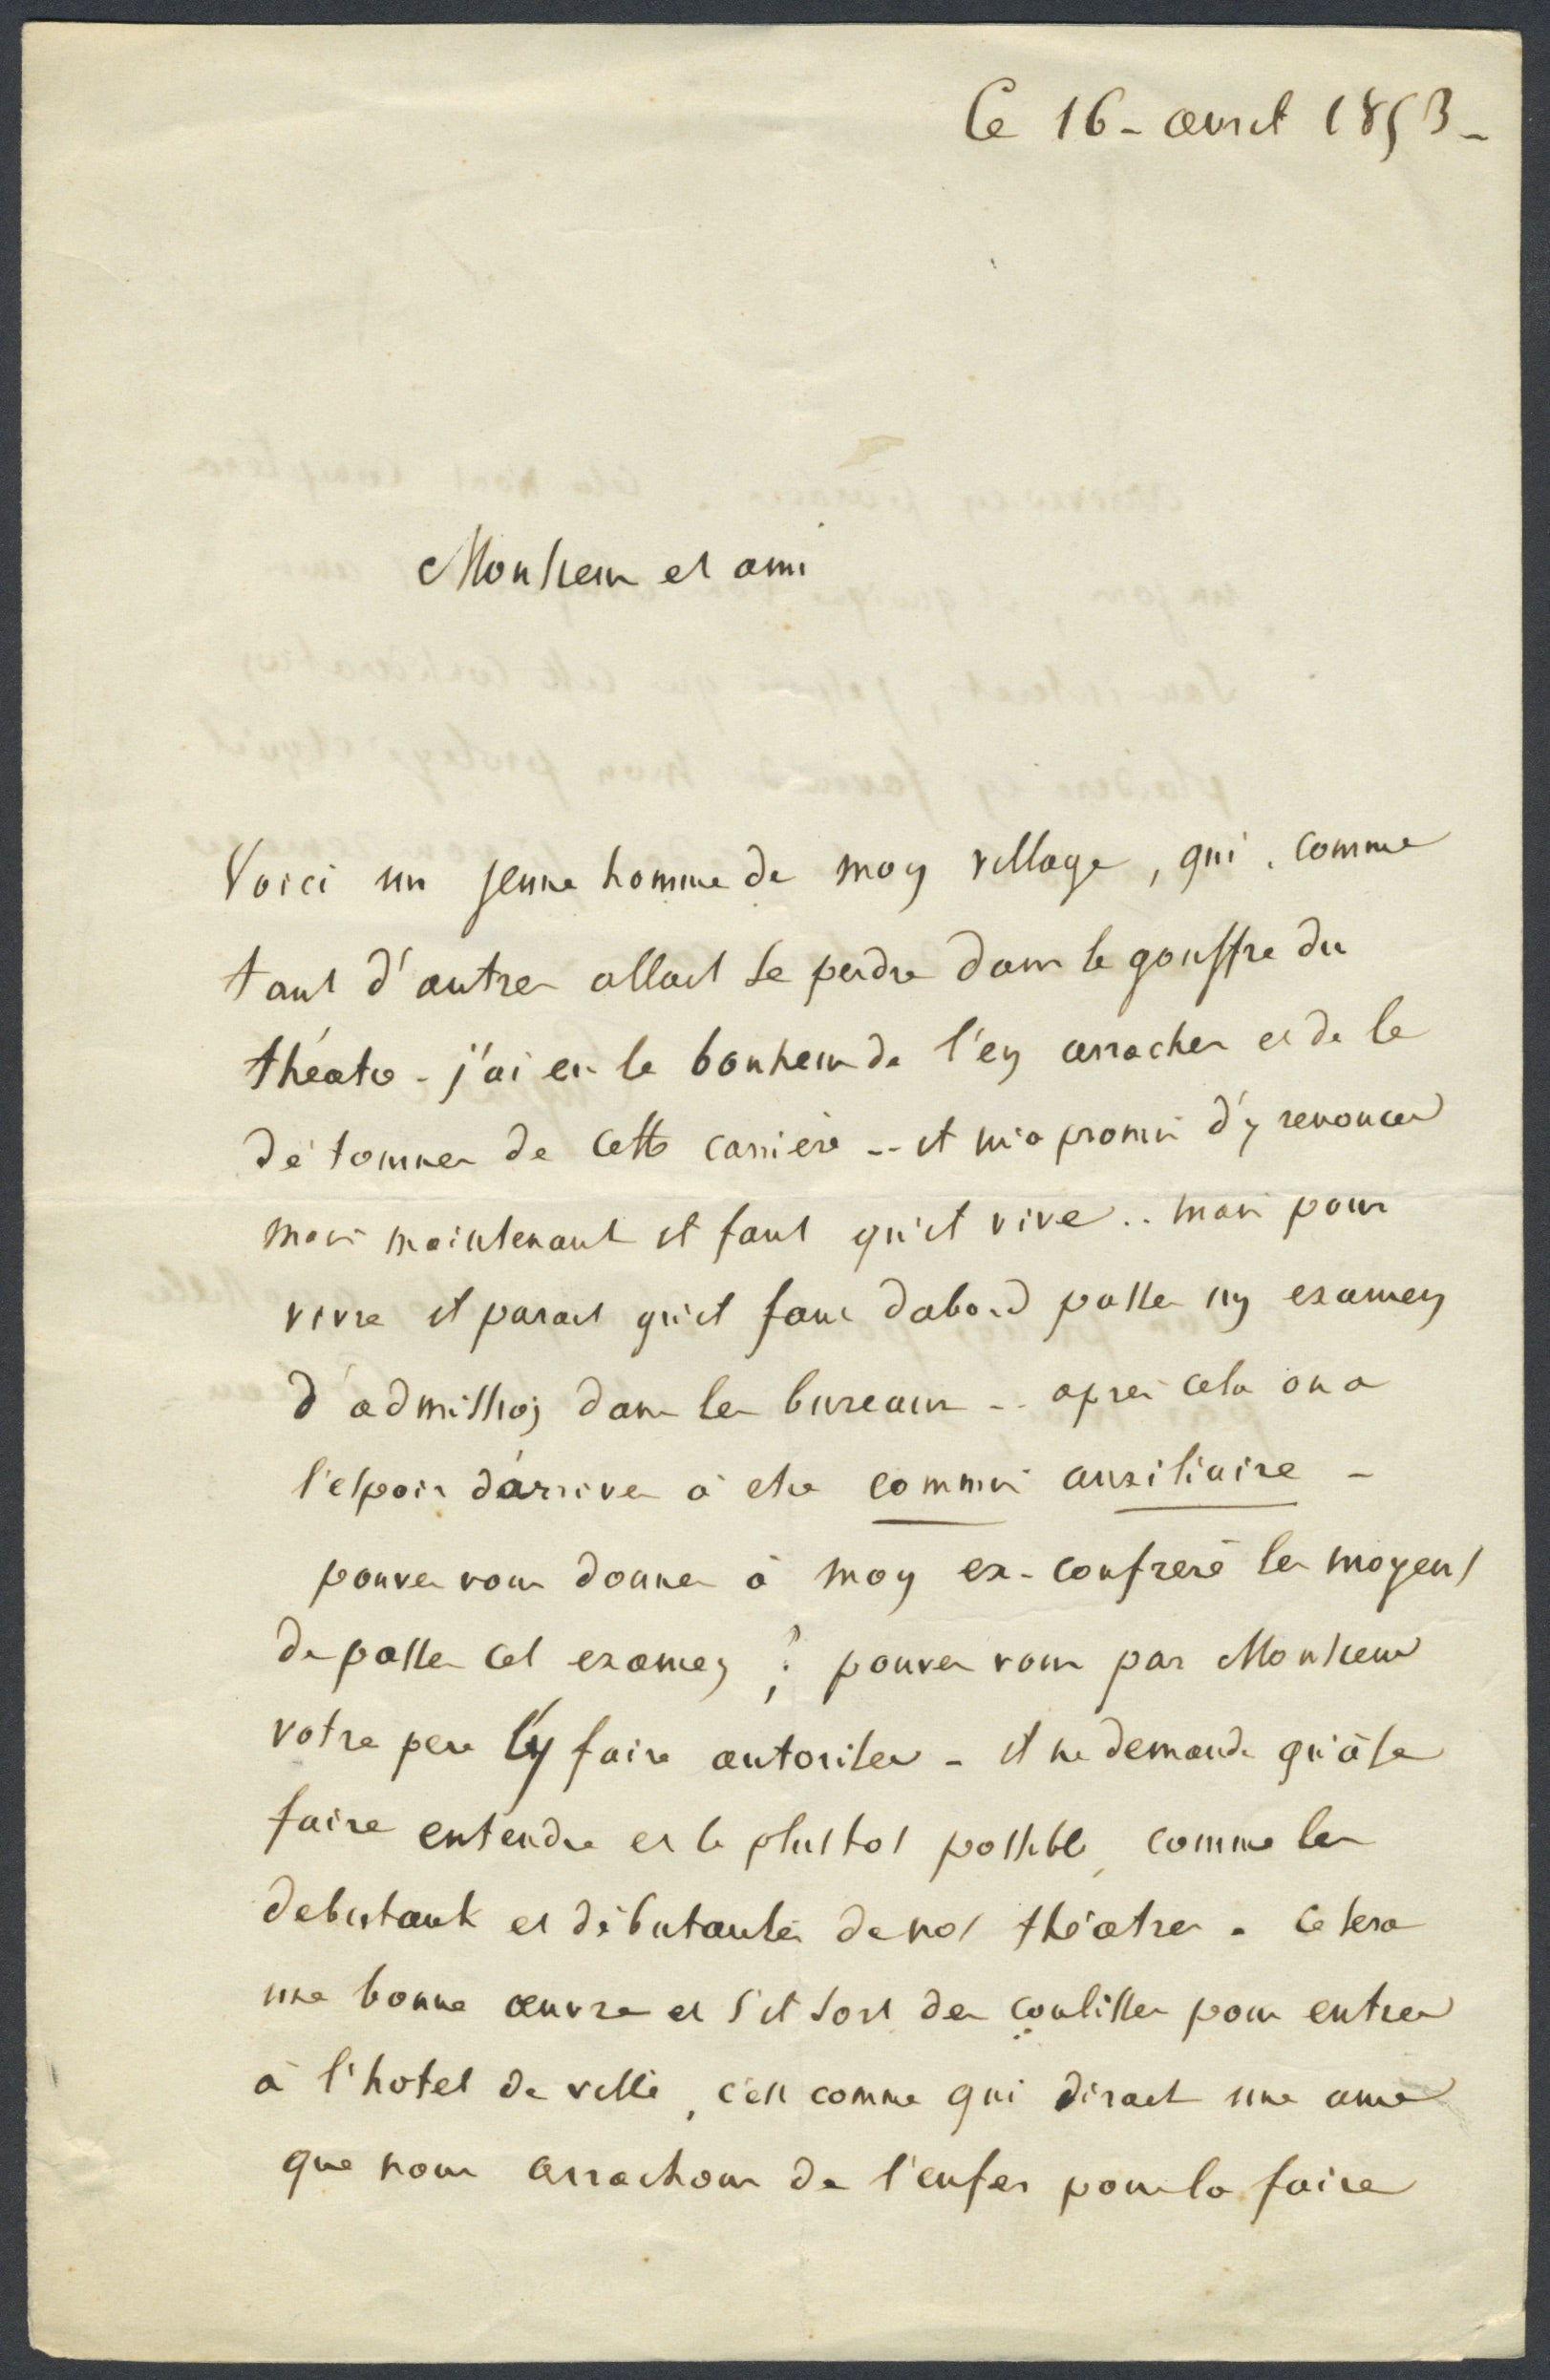 Ce 16 - avril 1853 -
Monsieur et ami
Voici un jeune homme de mon village, qui, comme
tant d'autres allait se perdre dans le gouffre du
théatre - j'ai eu le bonheur de l'en arracher et de le
détourner de cette carrière -- il m'a promis d'y renoncer
mais maintenant il faut qu'il vive .. mais pour
vivre il parait qu'il faut dabord passer un examen
d'admission dans les bureaux -- après cela on a
l'espoir d'arriver à etre commis auxiliaire -
pouvez vous donner à mon ex-confrere les moyens
de passer cet examen ? pouvez vous par Monsieur
votre pere l'y faire autoriser - il ne demande qu'à se
faire entendre et le plustot possible, comme les
debutants et débutantes de nos théatres. ce sera
une bonne œuvre et s'il sort des coulisses pour entrer
à l'hotel de ville, c'est comme qui dirait une ame
que nous arrachons de l'enfer pour la faire